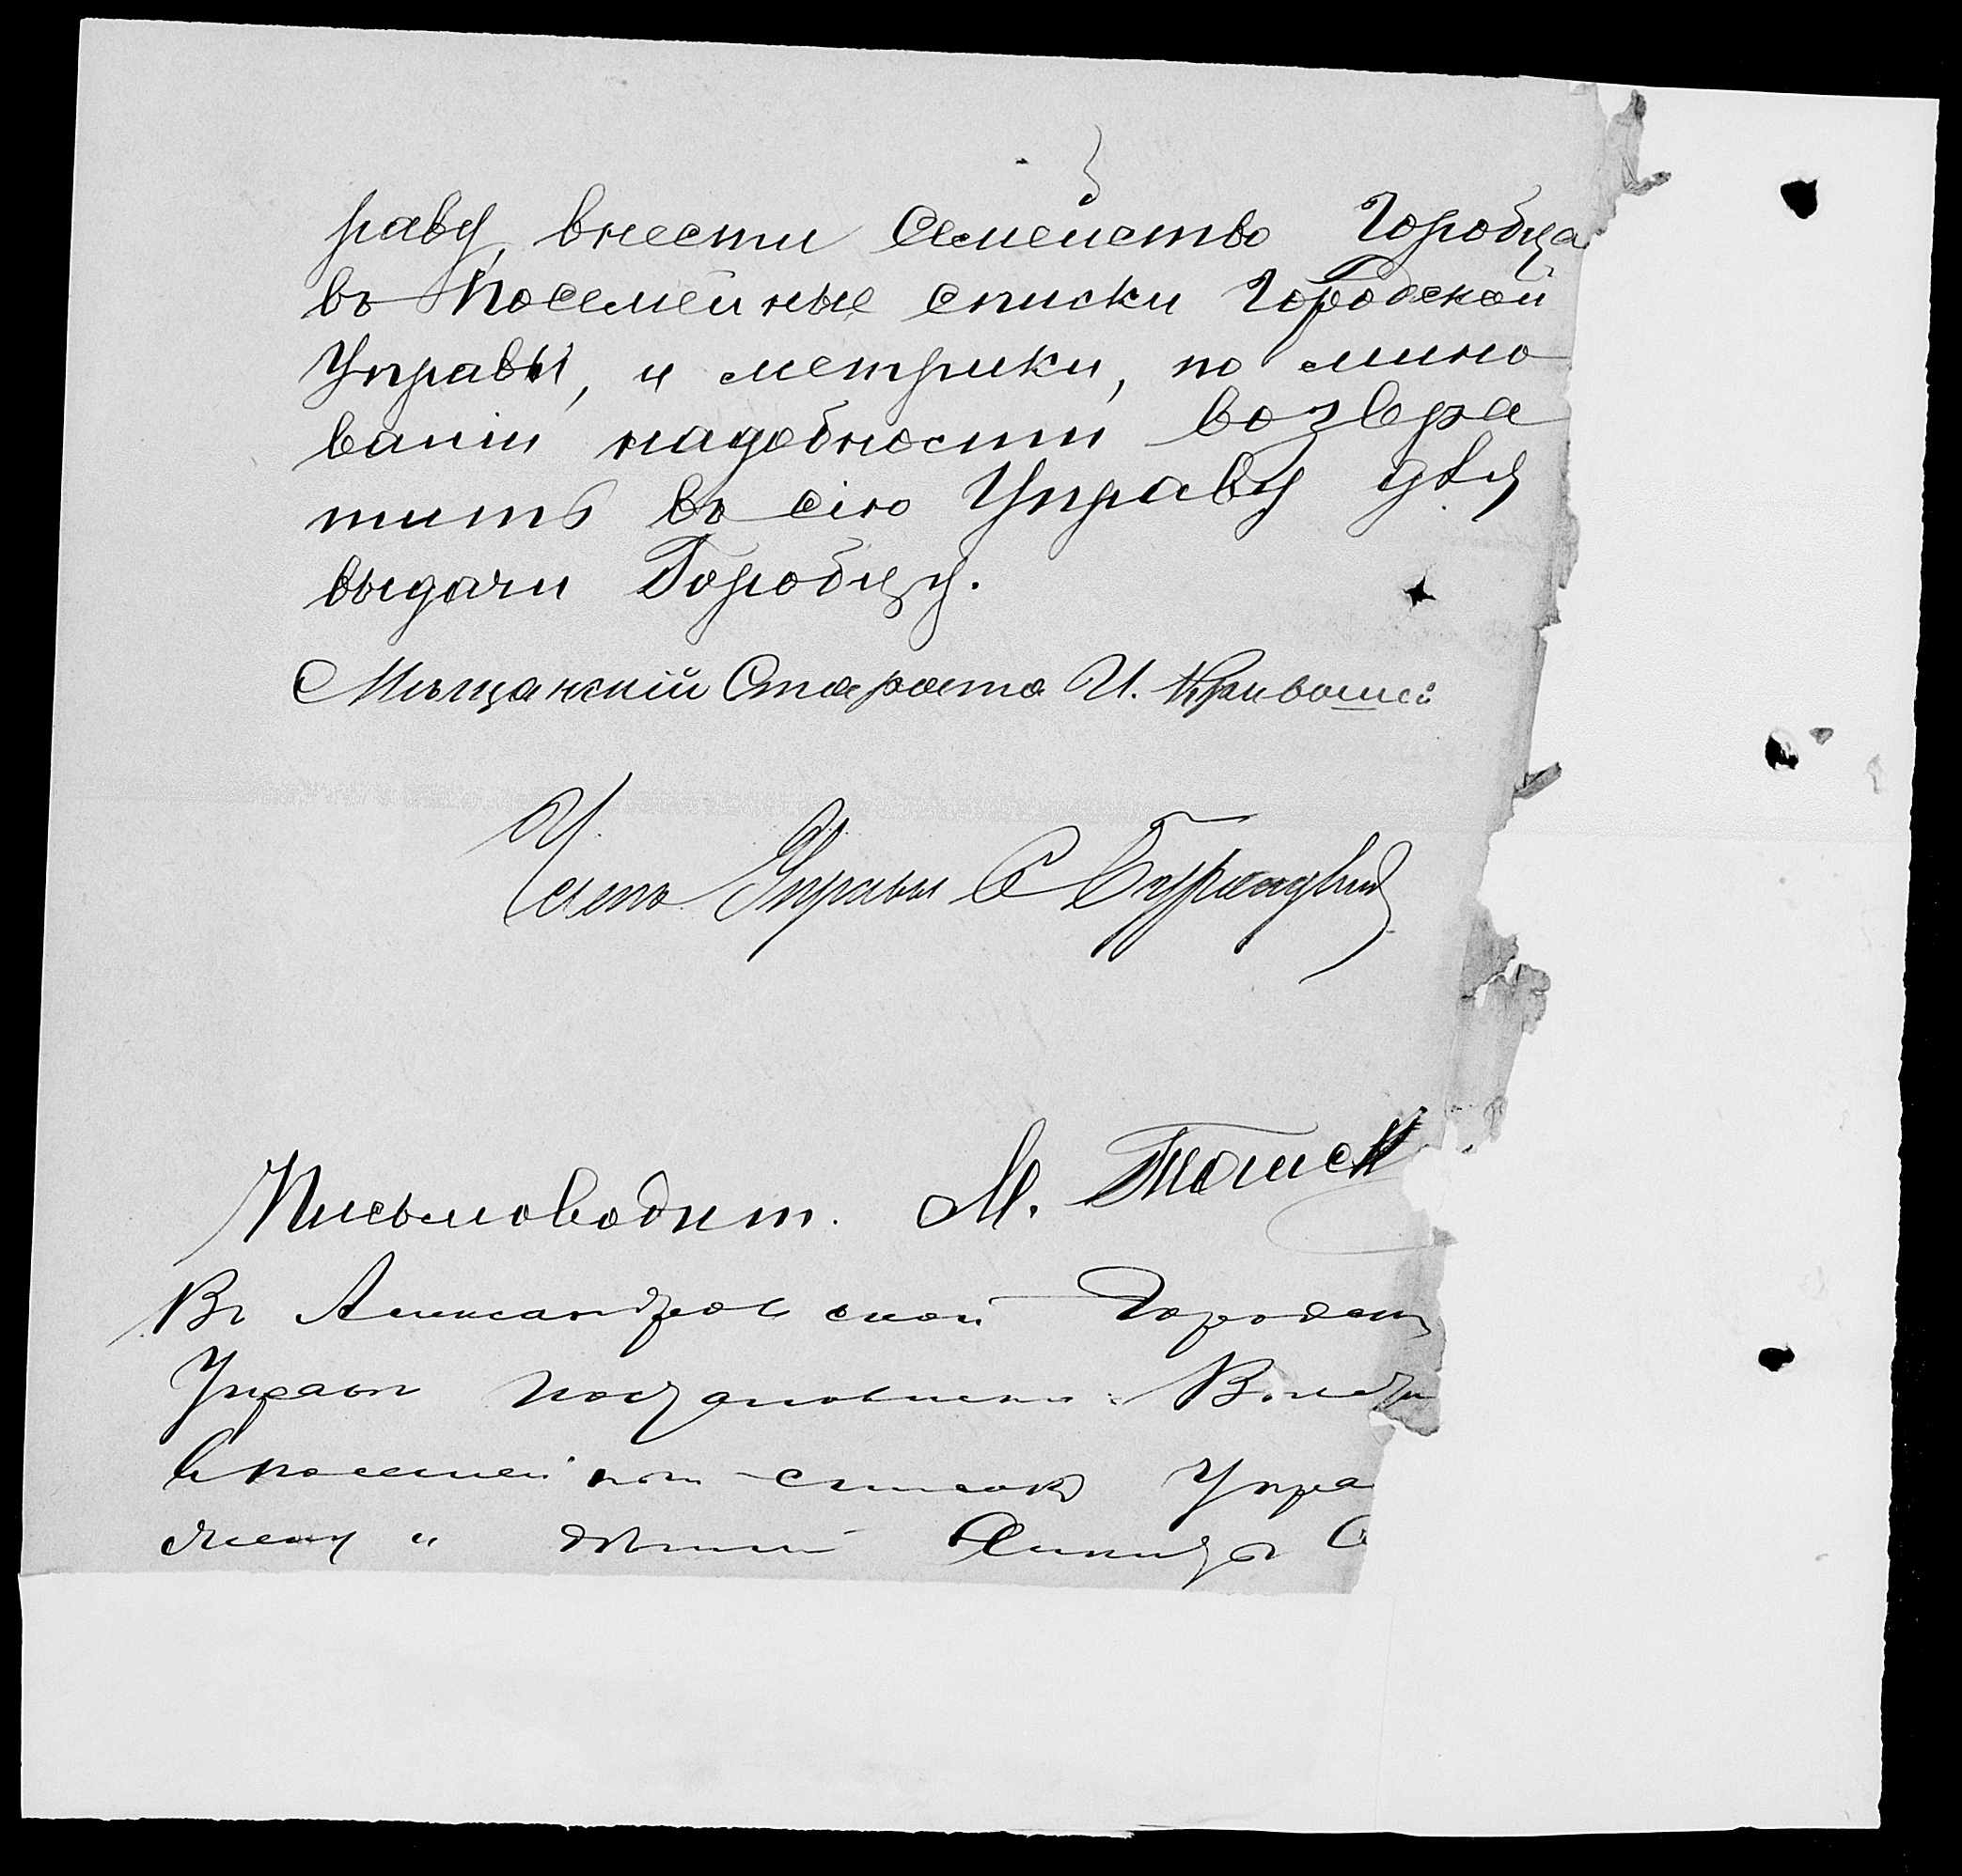 раву, внести Семейство Горобца
въ Посемейные списки Городской
Управы, и метрики, по мино
ваніи надобности возвра
тить въ сію Управу для
выдачи Горобцу.
Мѣщанскій Староста И.
И.
Членъ Управы С
Письмоводит. М.
Въ Александровской Городск
Управѣ постановлено:
въ посемейный списокъ Упра
жену и дѣтей